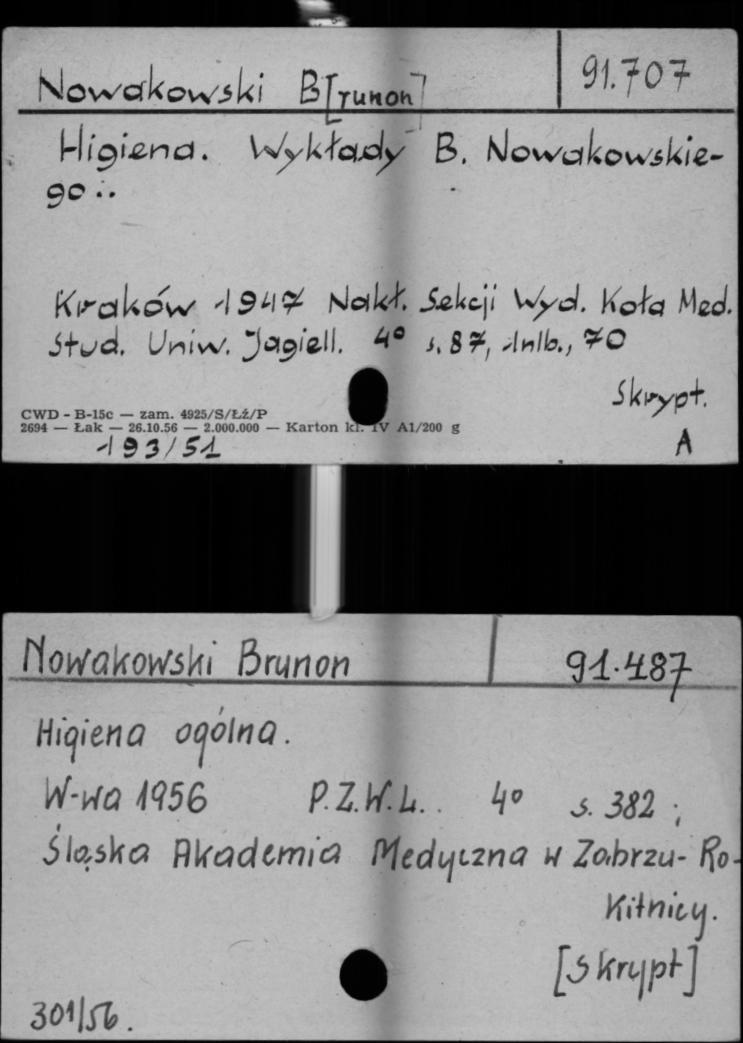 Nowakowski B[runon]
91.707
Higiena. Wykłady B. Nowakowskie-
go..
Kraków 1947 Nakł. Sekcji Wyd. Koła Med.
Stud. Uniw. Jagiell. 4° s. 87, nlb., 70
Skrypt.
CWD - B-15c — zam. 4925/S/Łź/P
2694 — Łak — 26.10.56 — 2.000.000 — Karton kl. IV A1/200 g
193/51
A
Nowakowski Brunon
91.487
Higiena ogólna.
W-wa 1956 P.Z.W.L. 4° s. 382;
Śląska Akademia Medyczna w Zabrzu-Ro-
kitnicy.
[Skrypt]
301/56.